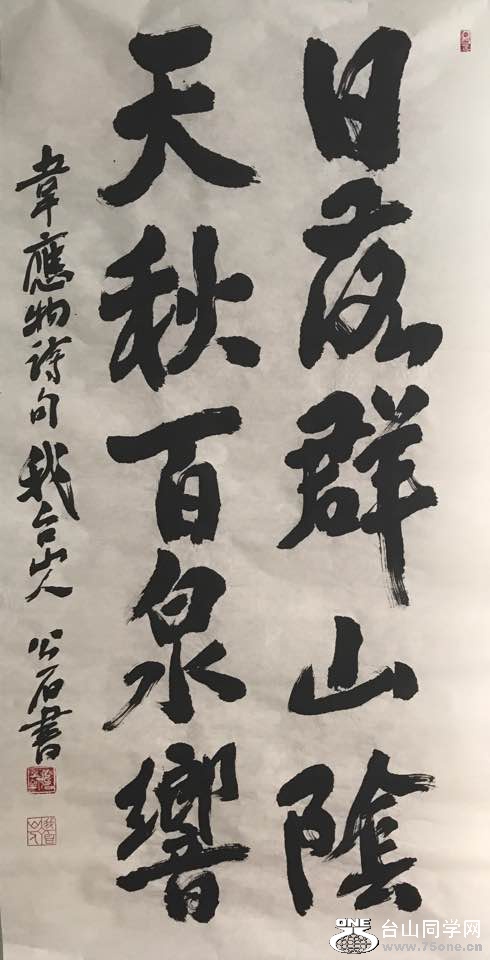 日落群山陰
天秋百泉響
韋應物詩句 我台山人 公石書
ONE
台山同学网
www.75one.cn